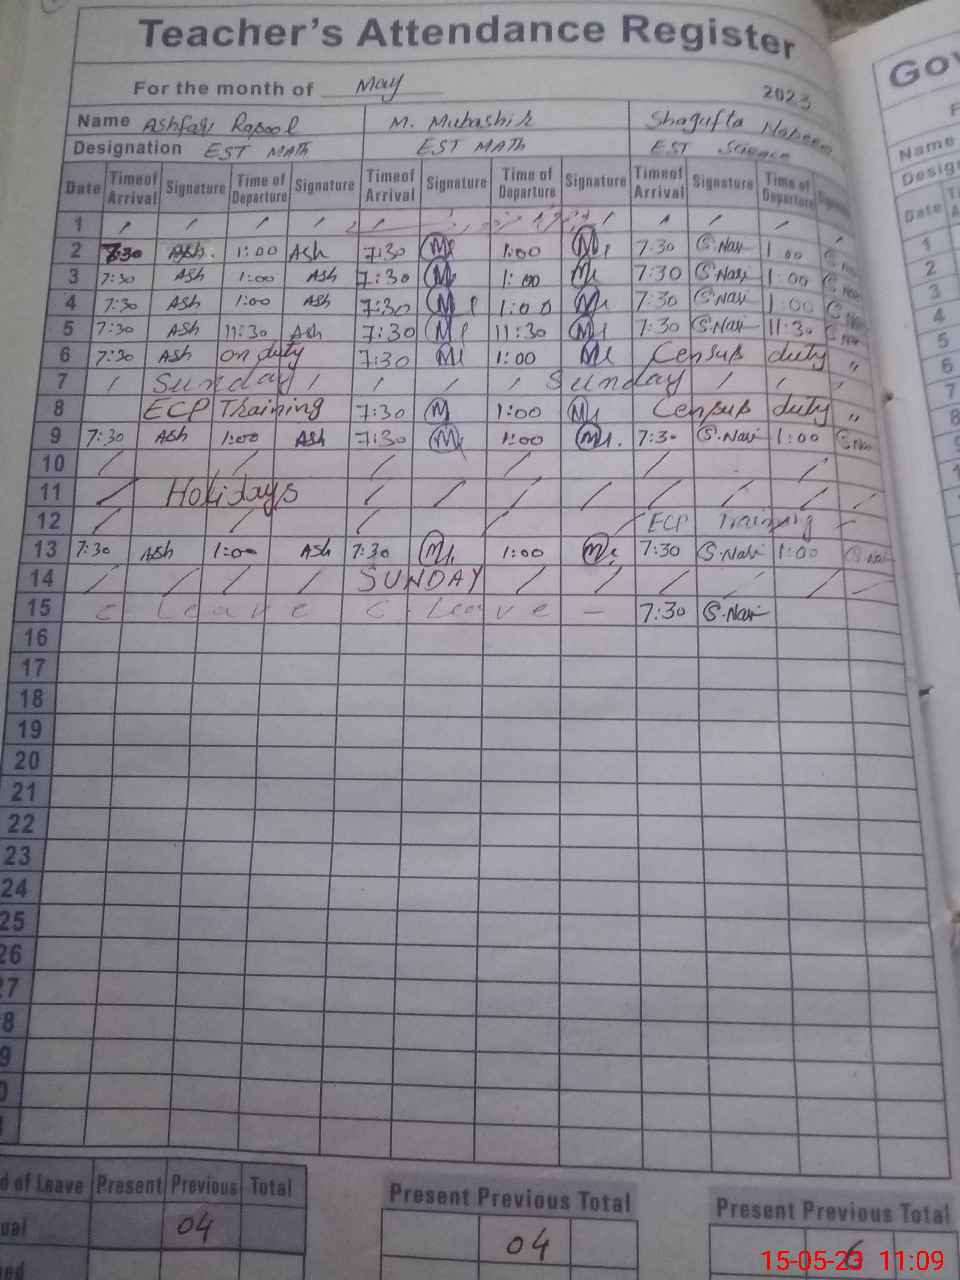 Teacher's Attendance Register
Gov
For the month of May 2023
Name Ashfaq Rasool M. Mubashir Shagufta
Designation EST MATH EST MATH EST Science
Name
Date Time of Arrival Signature Time of Departure Signature Time of Arrival Signature Time of Departure Signature Time of Arrival Signature Time of Departure
Date
1 / / / / / / / /
2 7:30 Ash. 1:00 Ash 7:30 1:00 7:30 S.Navi 1 00
3 7:30 Ash 1:00 Ash 7:30 1:00 7:30 S.Navi 1:00
4 7:30 Ash 1:00 Ash 7:30 1:00 7:30 S.Navi 1:00
5 7:30 Ash 11:30 Ash 7:30 11:30 7:30 S.Navi 11:30
6 7:30 Ash on duty 7:30 1:00 Census duty "
7 / Sunday / / / / Sunday / / /
8 ECP Training 7:30 1:00 Census duty "
9 7:30 Ash 1:00 Ash 7:30 1:00 7:30 S.Navi 1:00
10 / / / / / /
11 / Holidays / / / / / / / /
12 / / / / / ECP Training
13 7:30 Ash 1:00 Ash 7:30 1:00 7:30 S.Navi 1:00
14 / / / / SUNDAY / / / / / /
15 c Leave C. Leave - 7:30 S.Navi
16
17
18
19
20
21
22
23
24
25
26
27
8
9
0
d of Leave Present Previous Total Present Previous Total Present Previous Total
ual 04 04 6
15-05-23 11:09